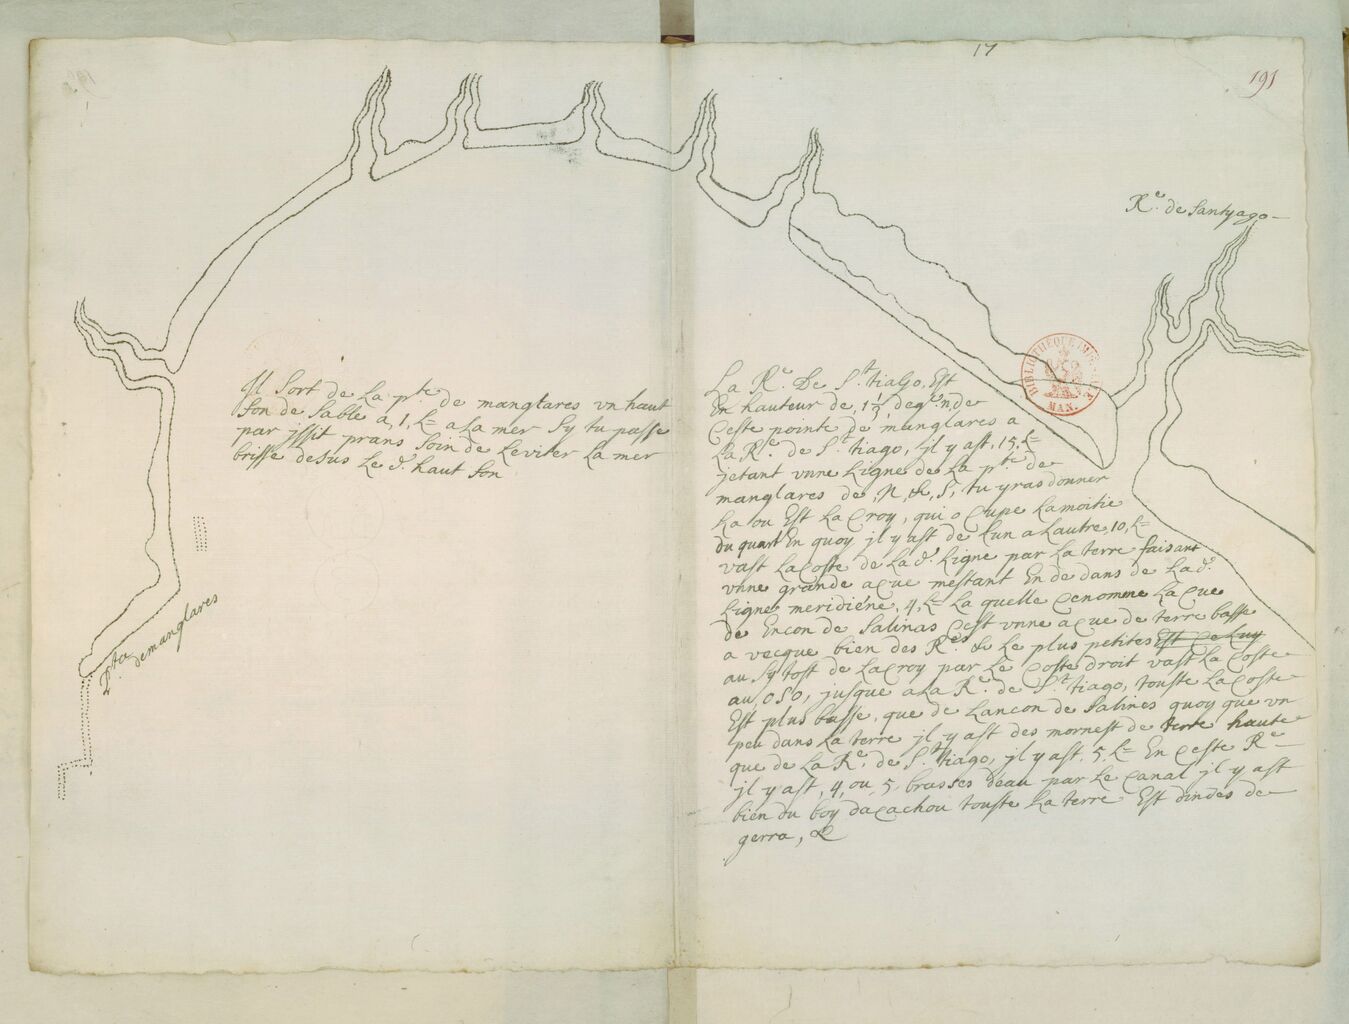 17
191
Re. de Santyago
BIBLIOTHEQUE IMPERIALE MAN.
Il sort de la pte de manglares vn haut
fon de sable a, 1, L= a la mer sy tu passe
par jssit prans soin de leviter la mer
brisse desus le d. haut fon
Pta. de manglares
La Re. De St. tiago, Est
En hauteur de, 1 1/2, deg. n de
Ceste pointe de manglares a
La Re. de St. tiago, jl y ast, 15, L=
jetant vnne Ligne de La pte de
manglares de, N, &, S, tu yras donner
La ou Est La Croy, qui ocupe La moitie
du quart En quoy jl y ast de Lun a Lautre, 10, L=
vast La Coste de La d. Ligne par La terre faisant
vnne grande acue mestant En de dans de La d.
Ligne meridiéne, 4, L= La quelle Cenomme La Cue
de Encon de Salinas Cest vnne acue de terre basse
a vecque bien des Res. & Le plus petites Est Ce Luy
au sytost de La Croy par Le Coste droit vast La Coste
au, oso, jusque a La Re. de St. tiago, touste La Coste
Est plus basse, que de Lancon de Salines quoy que vn
peu dans La terre jl y ast des mornest de terre haute
que de La Re. de St. tiago, jl y ast, 5, L= En Ceste Re.
jl y ast, 4, ou, 5, brasses deau par Le Canal jl y ast
bien du boy dacachou touste La terre Est dindes de
gerra, &